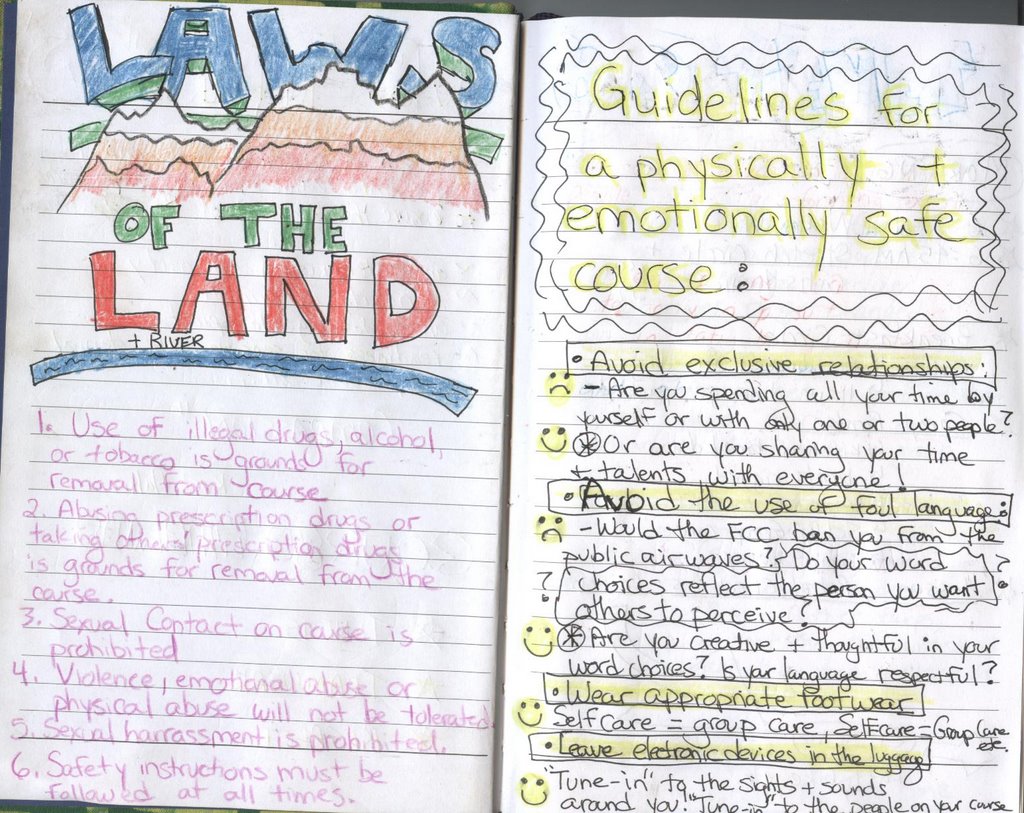 LAWS
OF THE
LAND
+ RIVER
1. Use of illegal drugs, alcohol,
or tobacco is grounds for
removal from course
2. Abusing prescription drugs or
taking others' prescription drugs
is grounds for removal from the
course.
3. Sexual Contact on course is
prohibited
4. Violence, emotional abuse or
physical abuse will not be tolerated
5. Sexual harrassment is prohibited.
6. Safety instructions must be
followed at all times.
Guidelines for
a physically +
emotionally safe
course:
• Avoid exclusive relationships:
- Are you spending all your time by
yourself or with only one or two people?
* Or are you sharing your time
+ talents with everyone!
• Avoid the use of foul language:
- Would the FCC ban you from the
public airwaves? Do your word
? choices reflect the person you want ?
others to perceive?
* Are you creative + thoughtful in your
word choices? Is your language respectful?
• Wear appropriate footwear
Self care = group care, Self care = Group Care
etc.
• Leave electronic devices in the luggage
"Tune-in" to the sights + sounds
around you! "Tune-in" to the people on your course